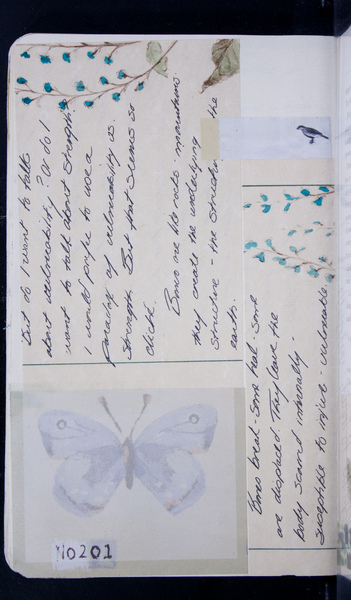 But do I want to talk
about vulnerability? Or do I
want to talk about strength.
I would prefer to use a
paradox of vulnerability is
strength. But that seems so
cliché.
Bones are like rocks - mountains
they create the underlying
structure - the structure the
earth.
Bones break - some heal - some
are displaced. They leave the
body scarred internally -
susceptible to injure - vulnerable
No201